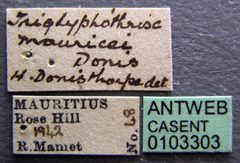 Triglyphothrix
mauricei
Donis
H. Donisthorpe det
MAURITIUS
Rose Hill
1942
R. Mamet
No. 48
ANTWEB
CASENT
0103303